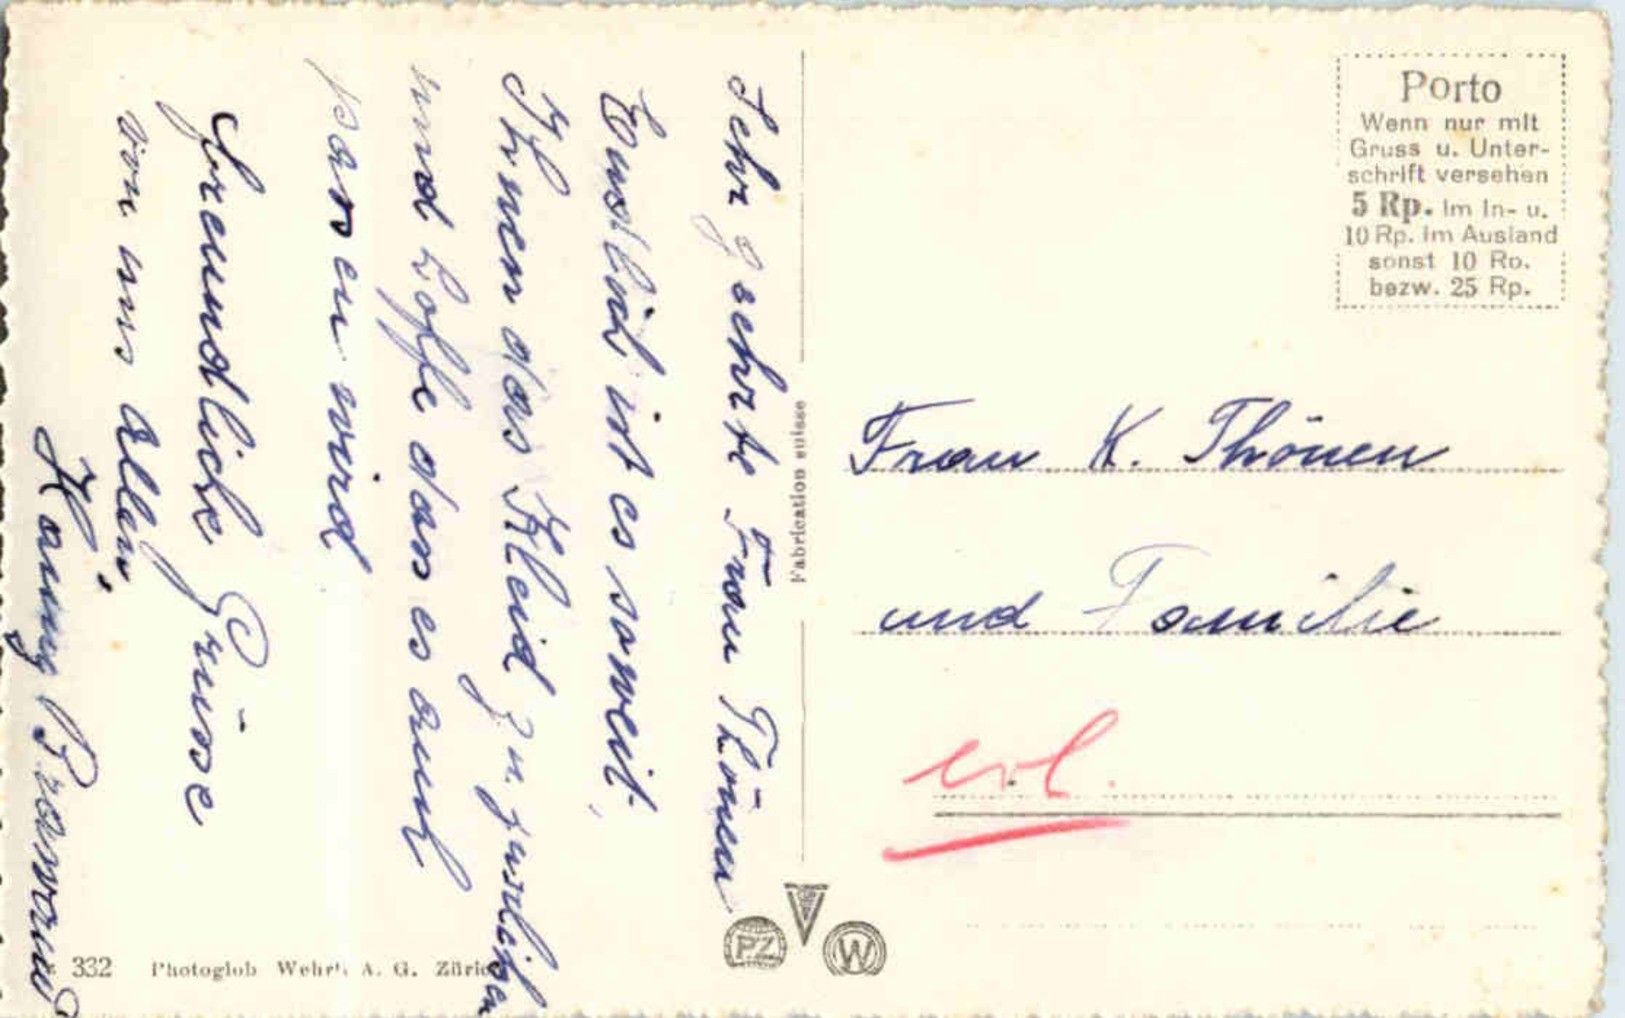 Sehr geehrte Frau Thönen
Endlich ist es soweit
Ihnen das Kleid zu zuschicken
und hoffe das es auch
pasen wird
Freundliche Grüse
von uns Allen
Fabrication suisse
332 Photoglob Wehrli A. G. Zürich
PZ
W
Porto
Wenn nur mit
Gruss u. Unter-
schrift versehen
5 Rp. im In- u.
10 Rp. im Ausland
sonst 10 Rp.
bezw. 25 Rp.
Frau K. Thönen
und Familie
erl.